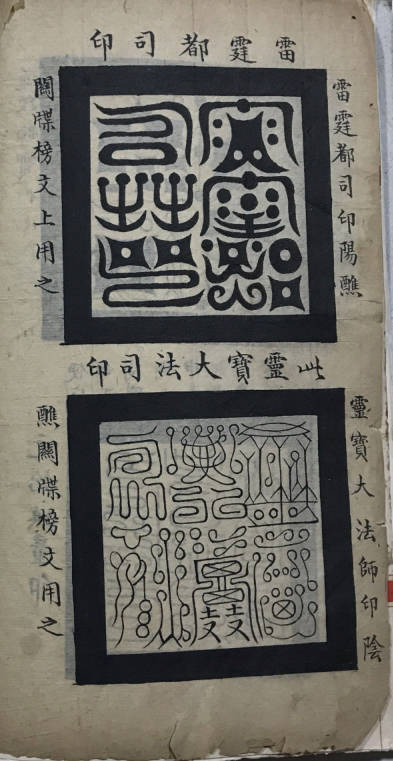 雷霆都司印
雷霆都司印陽醮
關牒榜文上用之
此靈寶大法司印
靈寶大法師印陰
醮關牒榜文用之